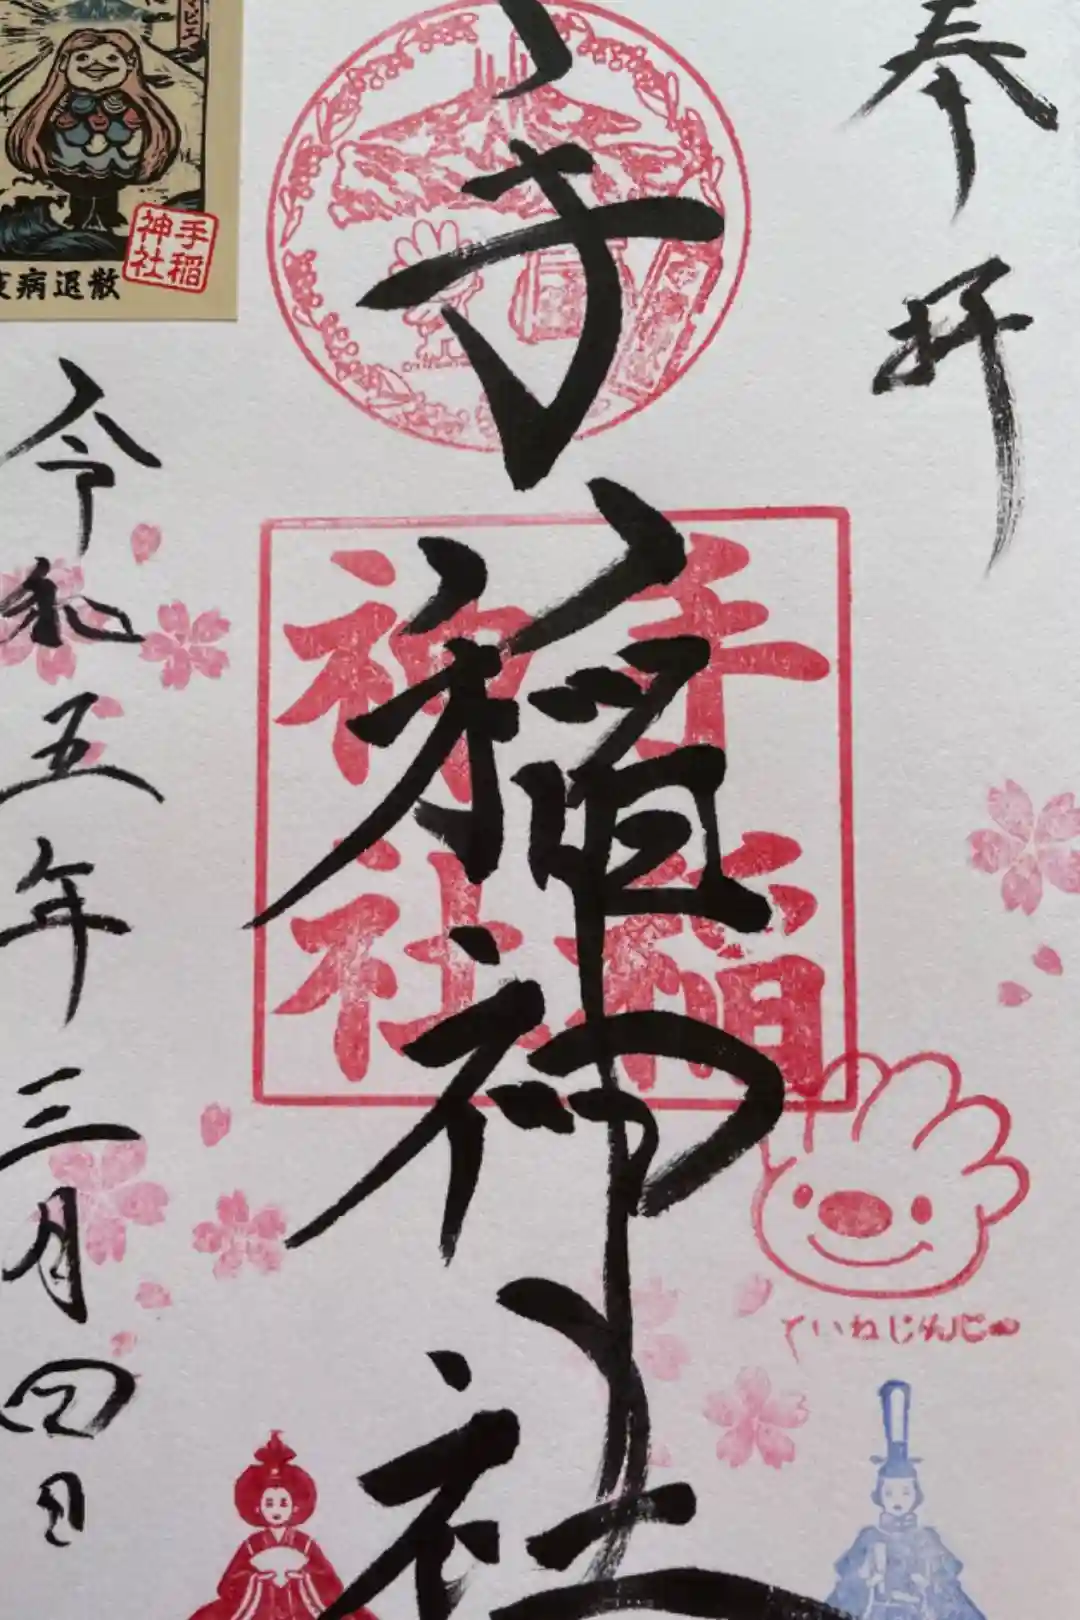 奉拝
手稲神社
手稲
神社
ていねじんじゃ
令和五年三月四日
手稲
神社
病退散